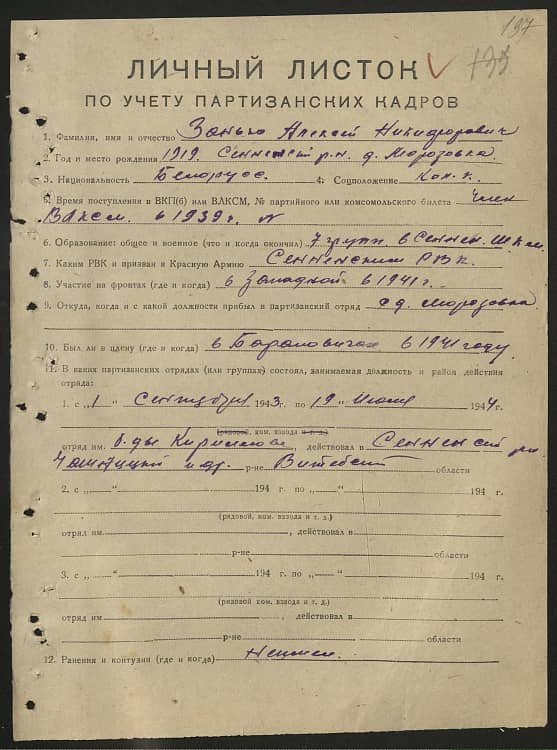 197
ЛИЧНЫЙ ЛИСТОК
ПО УЧЕТУ ПАРТИЗАНСКИХ КАДРОВ
1. Фамилия, имя и отчество Занько Алексей Никифорович
2. Год и место рождения 1919. Сенненский р-н д. Морозовка.
3. Национальность Белорус. 4. Соцположение Кол-к.
5. Время поступления в ВКП(б) или ВЛКСМ, № партийного или комсомольского билета член
ВЛКСМ. в 1939 г. N
6. Образование: общее и военное (что и когда окончил) 7 групп в Сеннен. ШКМ.
7. Каким РВК и призван в Красную Армию Сенненским РВК.
8. Участие на фронтах (где и когда) в Западной в 1941 г.
9. Откуда, когда и с какой должности прибыл в партизанский отряд с д. Морозовка
10. Был ли в плену (где и когда) в Барановичах в 1941 году.
11. В каких партизанских отрядах (или группах) состоял, занимаемая должность и район действия
отряда:
1. с „1 " Сентября 1943 г. по „19" Июля 1944 г.
(рядовой, ком. взвода и т. д.)
отряд им. Кириллова, действовал в Сенненский р-н
Чашницкий и др. р-не Витебской области
2. с „ " 194 г. по „ " 194 г.
(рядовой, ком. взвода и т. д.)
отряд им. , действовал в
р-не области
3. с „ " 194 г. по „ " 194 г.
(рядовой ком. взвода и т. д.)
отряд им , действовал в
р-не области
12. Ранения и контузии (где и когда)